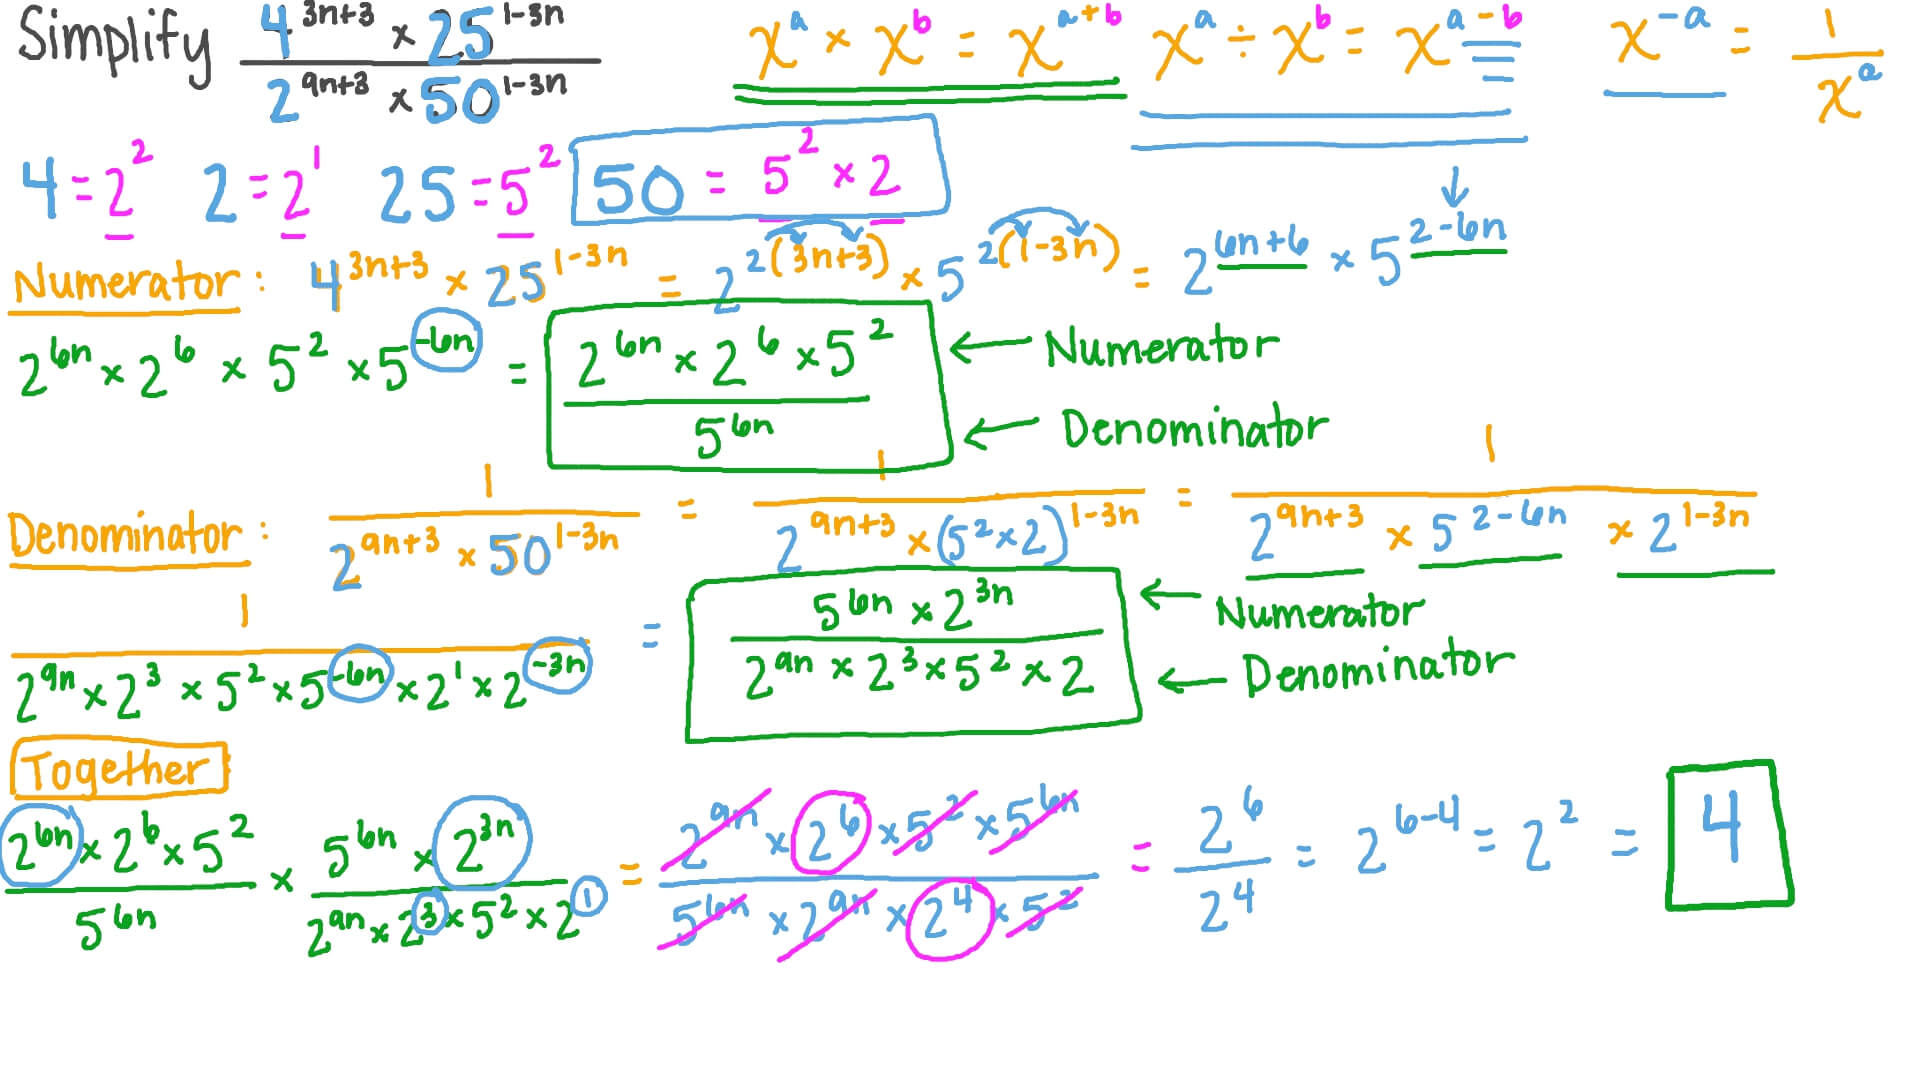 Simplify 4^(3n+3) × 25^(1-3n) / 2^(9n+3) × 50^(1-3n)   x^a × x^b = x^(a+b)   x^a ÷ x^b = x^(a-b)   x^(-a) = 1/x^a
4 = 2^2   2 = 2^1   25 = 5^2   50 = 5^2 × 2
Numerator: 4^(3n+3) × 25^(1-3n) = 2^(2(3n+3)) × 5^(2(1-3n)) = 2^(6n+6) × 5^(2-6n)
2^(6n) × 2^6 × 5^2 × 5^(-6n) = 2^(6n) × 2^6 × 5^2 / 5^(6n) ← Numerator
← Denominator
Denominator: 1 / 2^(9n+3) × 50^(1-3n) = 1 / 2^(9n+3) × (5^2 × 2)^(1-3n) = 1 / 2^(9n+3) × 5^(2-6n) × 2^(1-3n)
1 / 2^(9n) × 2^3 × 5^2 × 5^(-6n) × 2^1 × 2^(-3n) = 5^(6n) × 2^(3n) / 2^(9n) × 2^3 × 5^2 × 2 ← Numerator
← Denominator
Together
2^(6n) × 2^6 × 5^2 / 5^(6n) × 5^(6n) × 2^(3n) / 2^(9n) × 2^3 × 5^2 × 2^1 = 2^(9n) × 2^6 × 5^2 × 5^(6n) / 5^(6n) × 2^(9n) × 2^4 × 5^2 = 2^6 / 2^4 = 2^(6-4) = 2^2 = 4